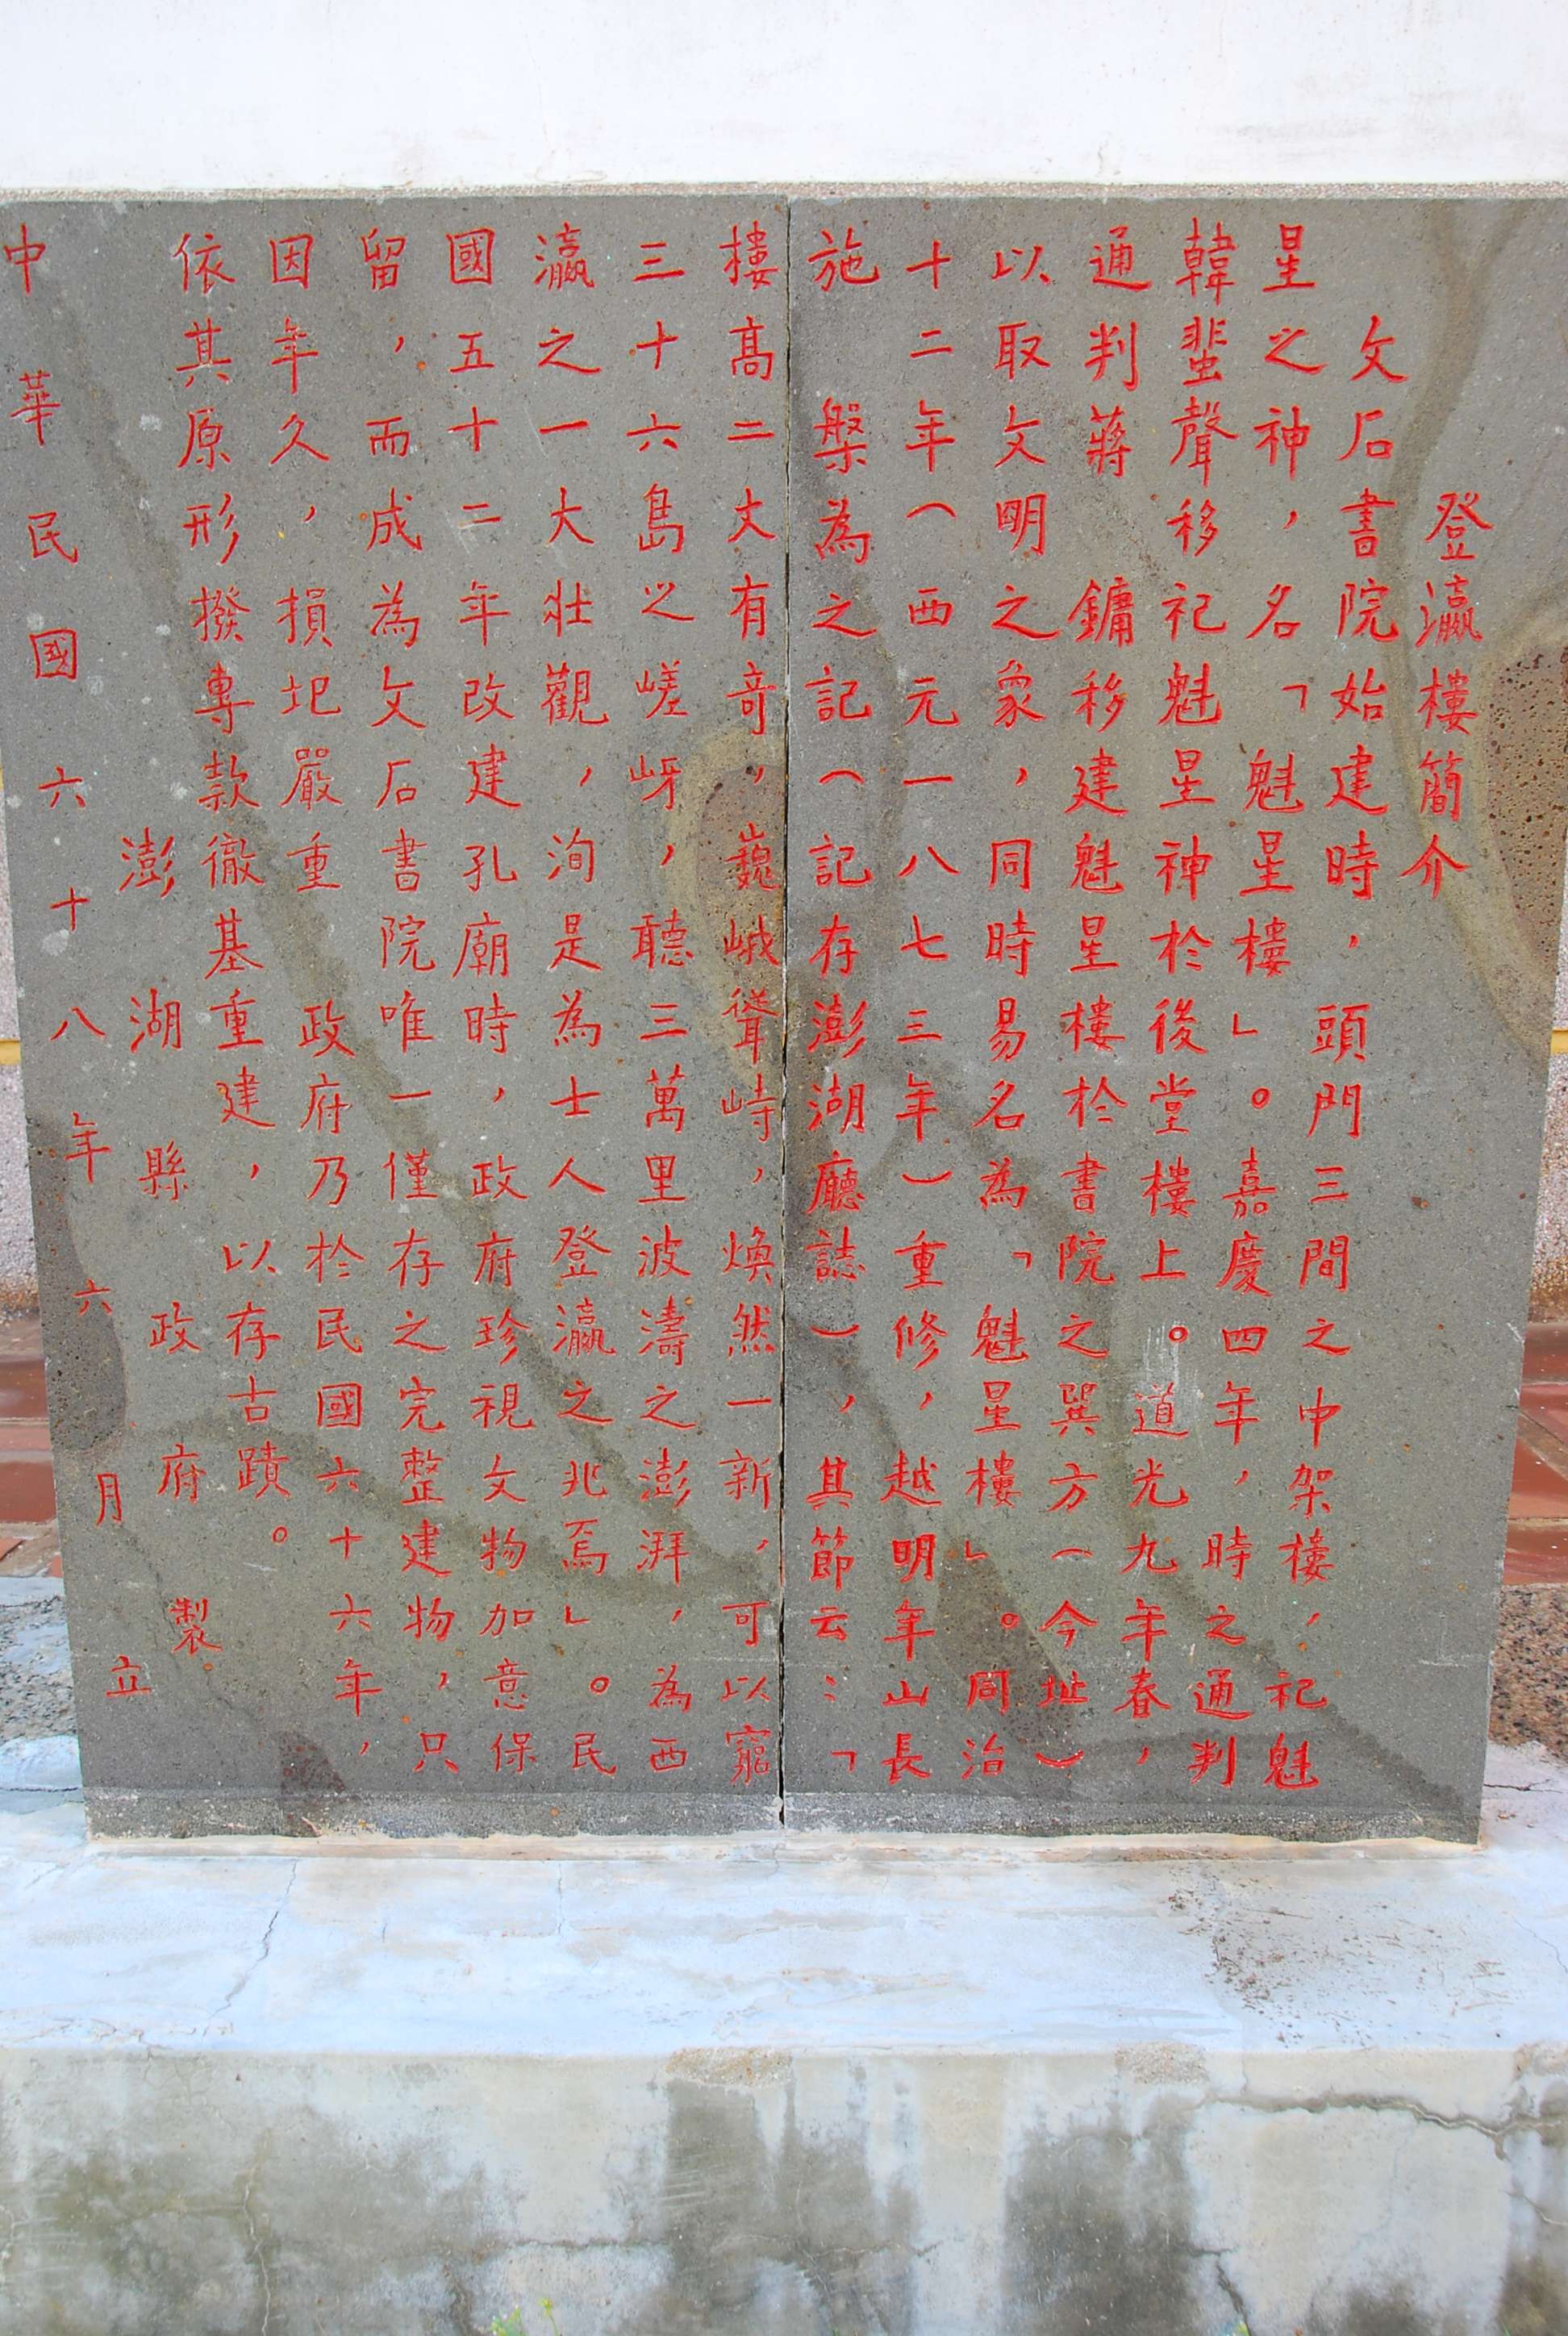 登瀛樓簡介
文石書院始建時，頭門三間之中架樓，祀魁
星之神，名「魁星樓」。嘉慶四年，時之通判
韓蜚聲移祀魁星神於後堂樓上。道光九年春，
通判蔣 鏞移建魁星樓於書院之巽方（今址）
以取文明之象，同時易名為「魁星樓」。同治
十二年（西元一八七三年）重修，越明年山長
施 槃為之記（記存澎湖廳誌），其節云：「
樓高二丈有奇，巍峨聳峙，煥然一新，可以窮
三十六島之嵯岈，聽三萬里波濤之澎湃，為西
瀛之一大壯觀，洵是為士人登瀛之兆焉」。民
國五十二年改建孔廟時，政府珍視文物加意保
留，而成為文石書院唯一僅存之完整建物，只
因年久，損圮嚴重 政府乃於民國六十六年，
依其原形撥專款徹基重建，以存古蹟。
澎湖縣政府 製
中華民國六十八年六月 立